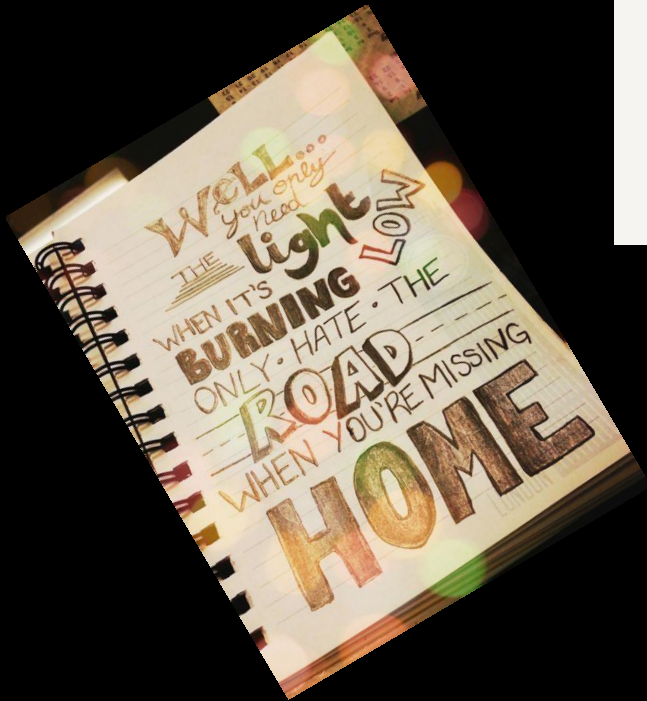 WELL...
you only
need
THE light
WHEN IT'S
BURNING LOW
ONLY • HATE • THE
ROAD
WHEN YOU'RE MISSING
HOME
LONDON